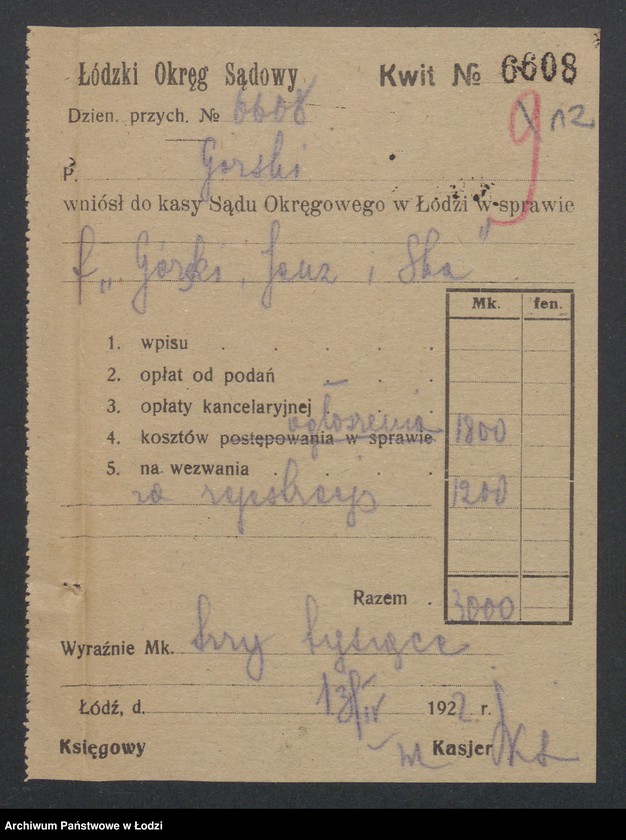 Łódzki Okręg Sądowy Kwit № 6608
Dzien. przych. № 6608
9 n2
P. Gorski
wniósł do kasy Sądu Okręgowego w Łodzi w sprawie
f „Górski, i Ska”
Mk. fen.
1. wpisu
2. opłat od podań
3. opłaty kancelaryjnej
ogłoszenia
4. kosztów postępowania w sprawie 1800
5. na wezwania
za rejestrację 1200
Razem 3000
Wyraźnie Mk. trzy tysiące
Łódź, d. 13/IV 1922 r.
Księgowy Kasjer
Archiwum Państwowe w Łodzi